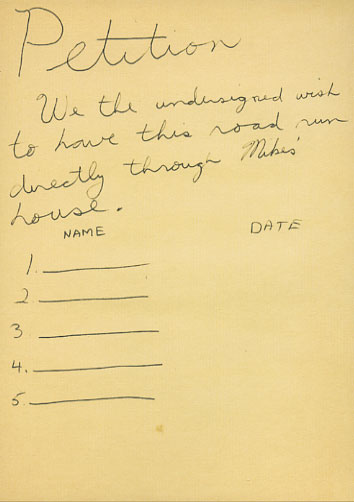 Petition
We the undersigned wish
to have this road run
directly through Mikes'
house.
NAME DATE
1.
2
3
4.
5.